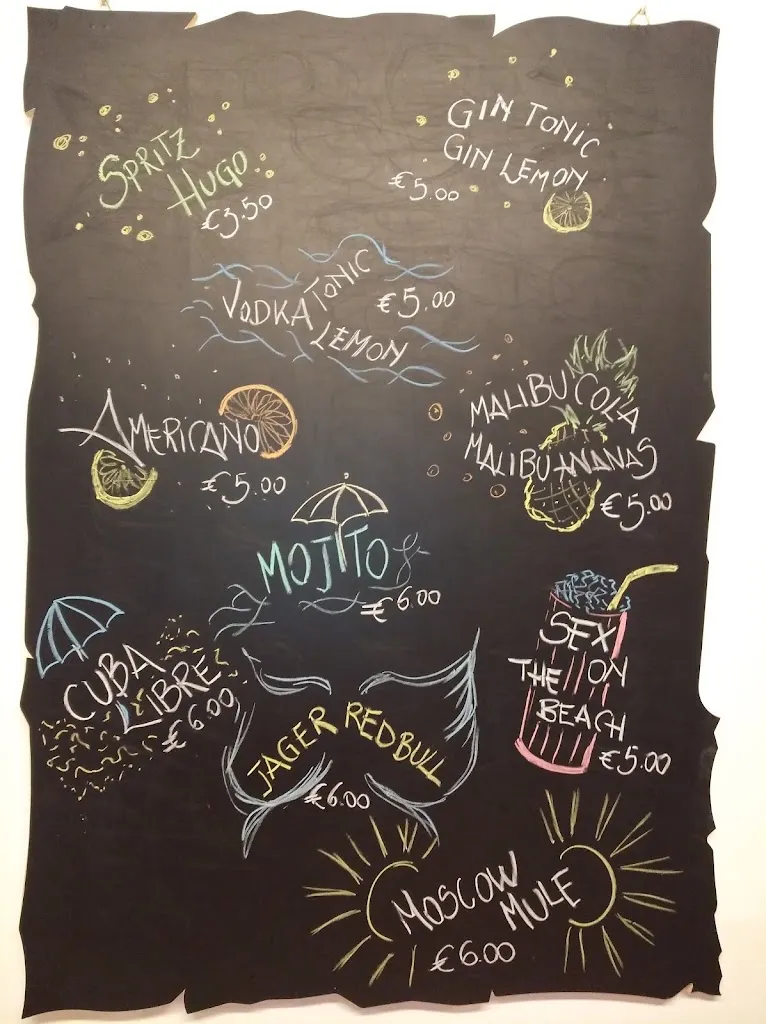 SPRITZ
HUGO
€3.50
GIN TONIC
GIN LEMON
€5.00
VODKA TONIC
LEMON
€5.00
AMERICANO
€5.00
MALIBU COLA
MALIBU ANANAS
€5.00
MOJITO
€6.00
CUBA
LIBRE
€6.00
SEX
THE ON
BEACH
€5.00
JAGER REDBULL
€6.00
MOSCOW
MULE
€6.00